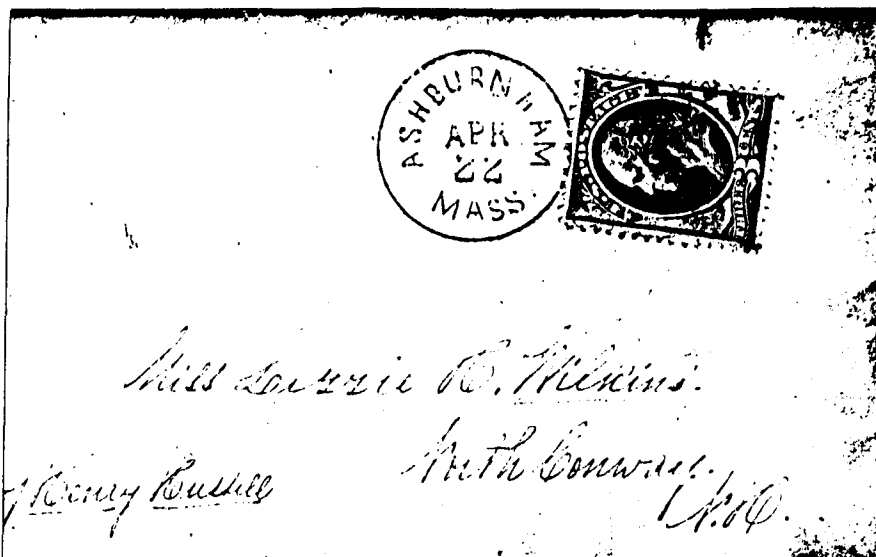 ASHBURNHAM
APR
22
MASS.
Miss Lizzie H. Wilkins.
North Conway.
Henry Russell
N.H.